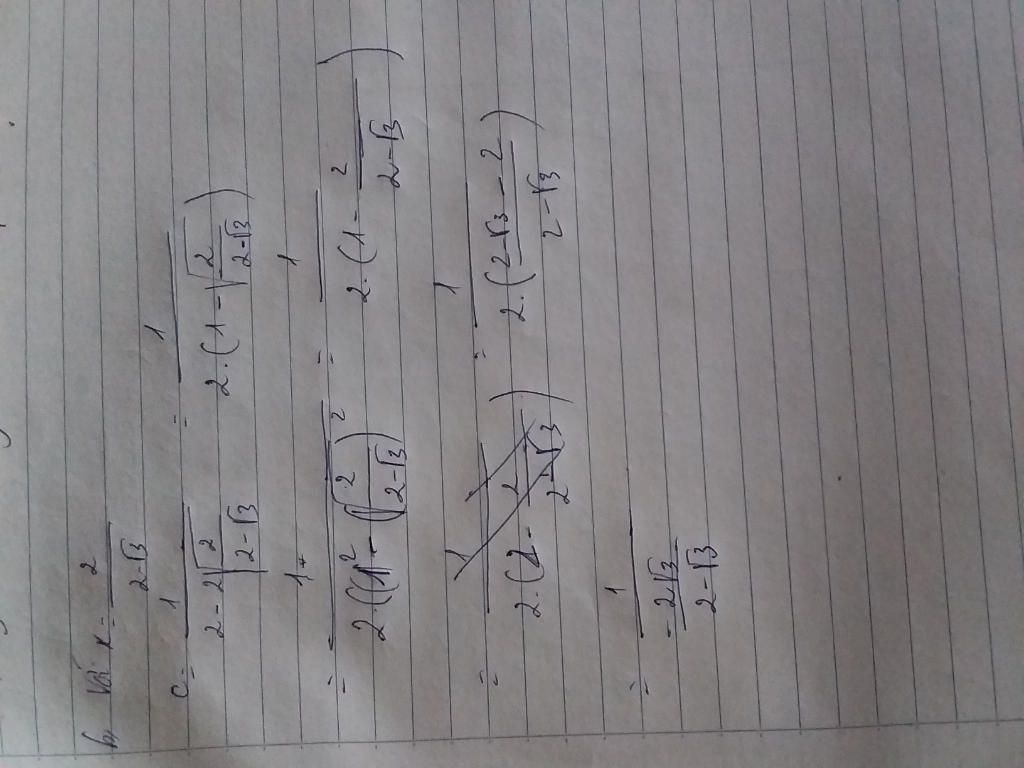 b, Với x = 2/(2-√3)
C = 1/(2 - 2√(2/(2-√3))) = 1/(2.(1 - √(2/(2-√3))))
= 1+/(2.((1)² - (√(2/(2-√3)))²) = 1/(2.(1 - 2/(2-√3)))
= 1/(2.(1 - 2/(2-√3))) = 1/(2.((2-√3-2)/(2-√3)))
= 1/((-2√3)/(2-√3))